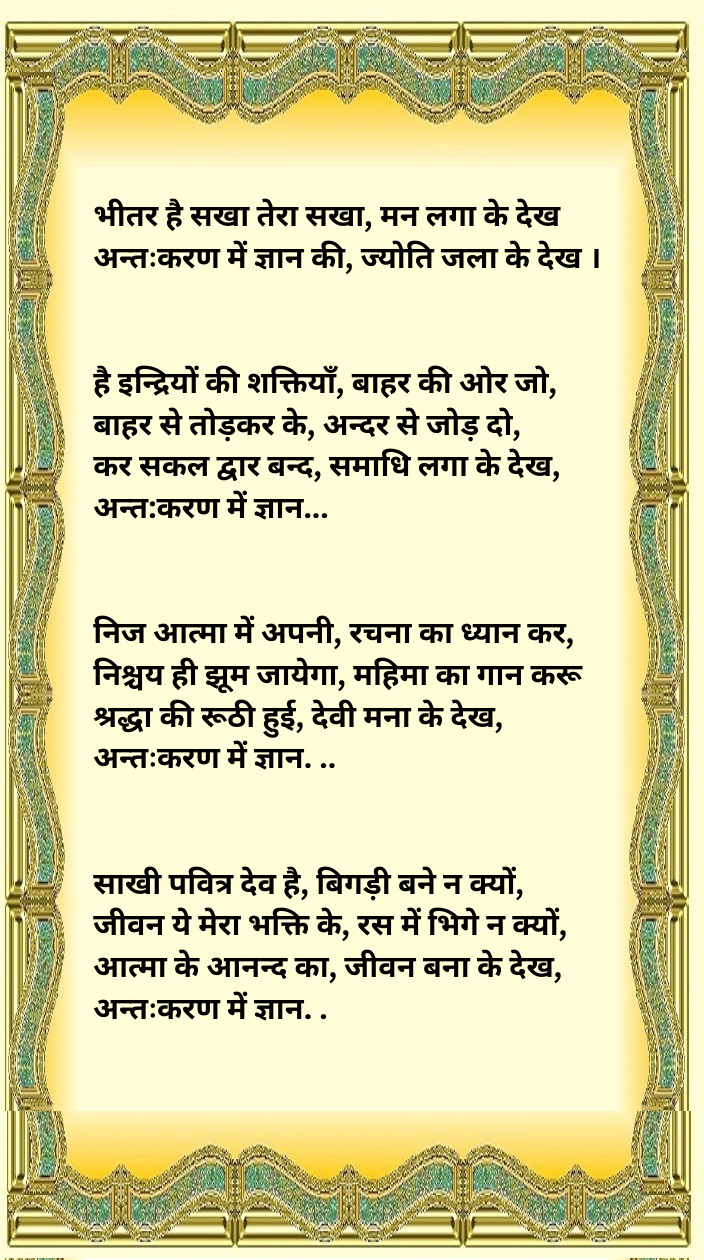 भीतर है सखा तेरा सखा, मन लगा के देख
अन्तःकरण में ज्ञान की, ज्योति जला के देख ।
है इन्द्रियों की शक्तियाँ, बाहर की ओर जो,
बाहर से तोड़कर के, अन्दर से जोड़ दो,
कर सकल द्वार बन्द, समाधि लगा के देख,
अन्त:करण में ज्ञान...
निज आत्मा में अपनी, रचना का ध्यान कर,
निश्चय ही झूम जायेगा, महिमा का गान करू
श्रद्धा की रूठी हुई, देवी मना के देख,
अन्तःकरण में ज्ञान. ..
साखी पवित्र देव है, बिगड़ी बने न क्यों,
जीवन ये मेरा भक्ति के, रस में भिगे न क्यों,
आत्मा के आनन्द का, जीवन बना के देख,
अन्तःकरण में ज्ञान. .